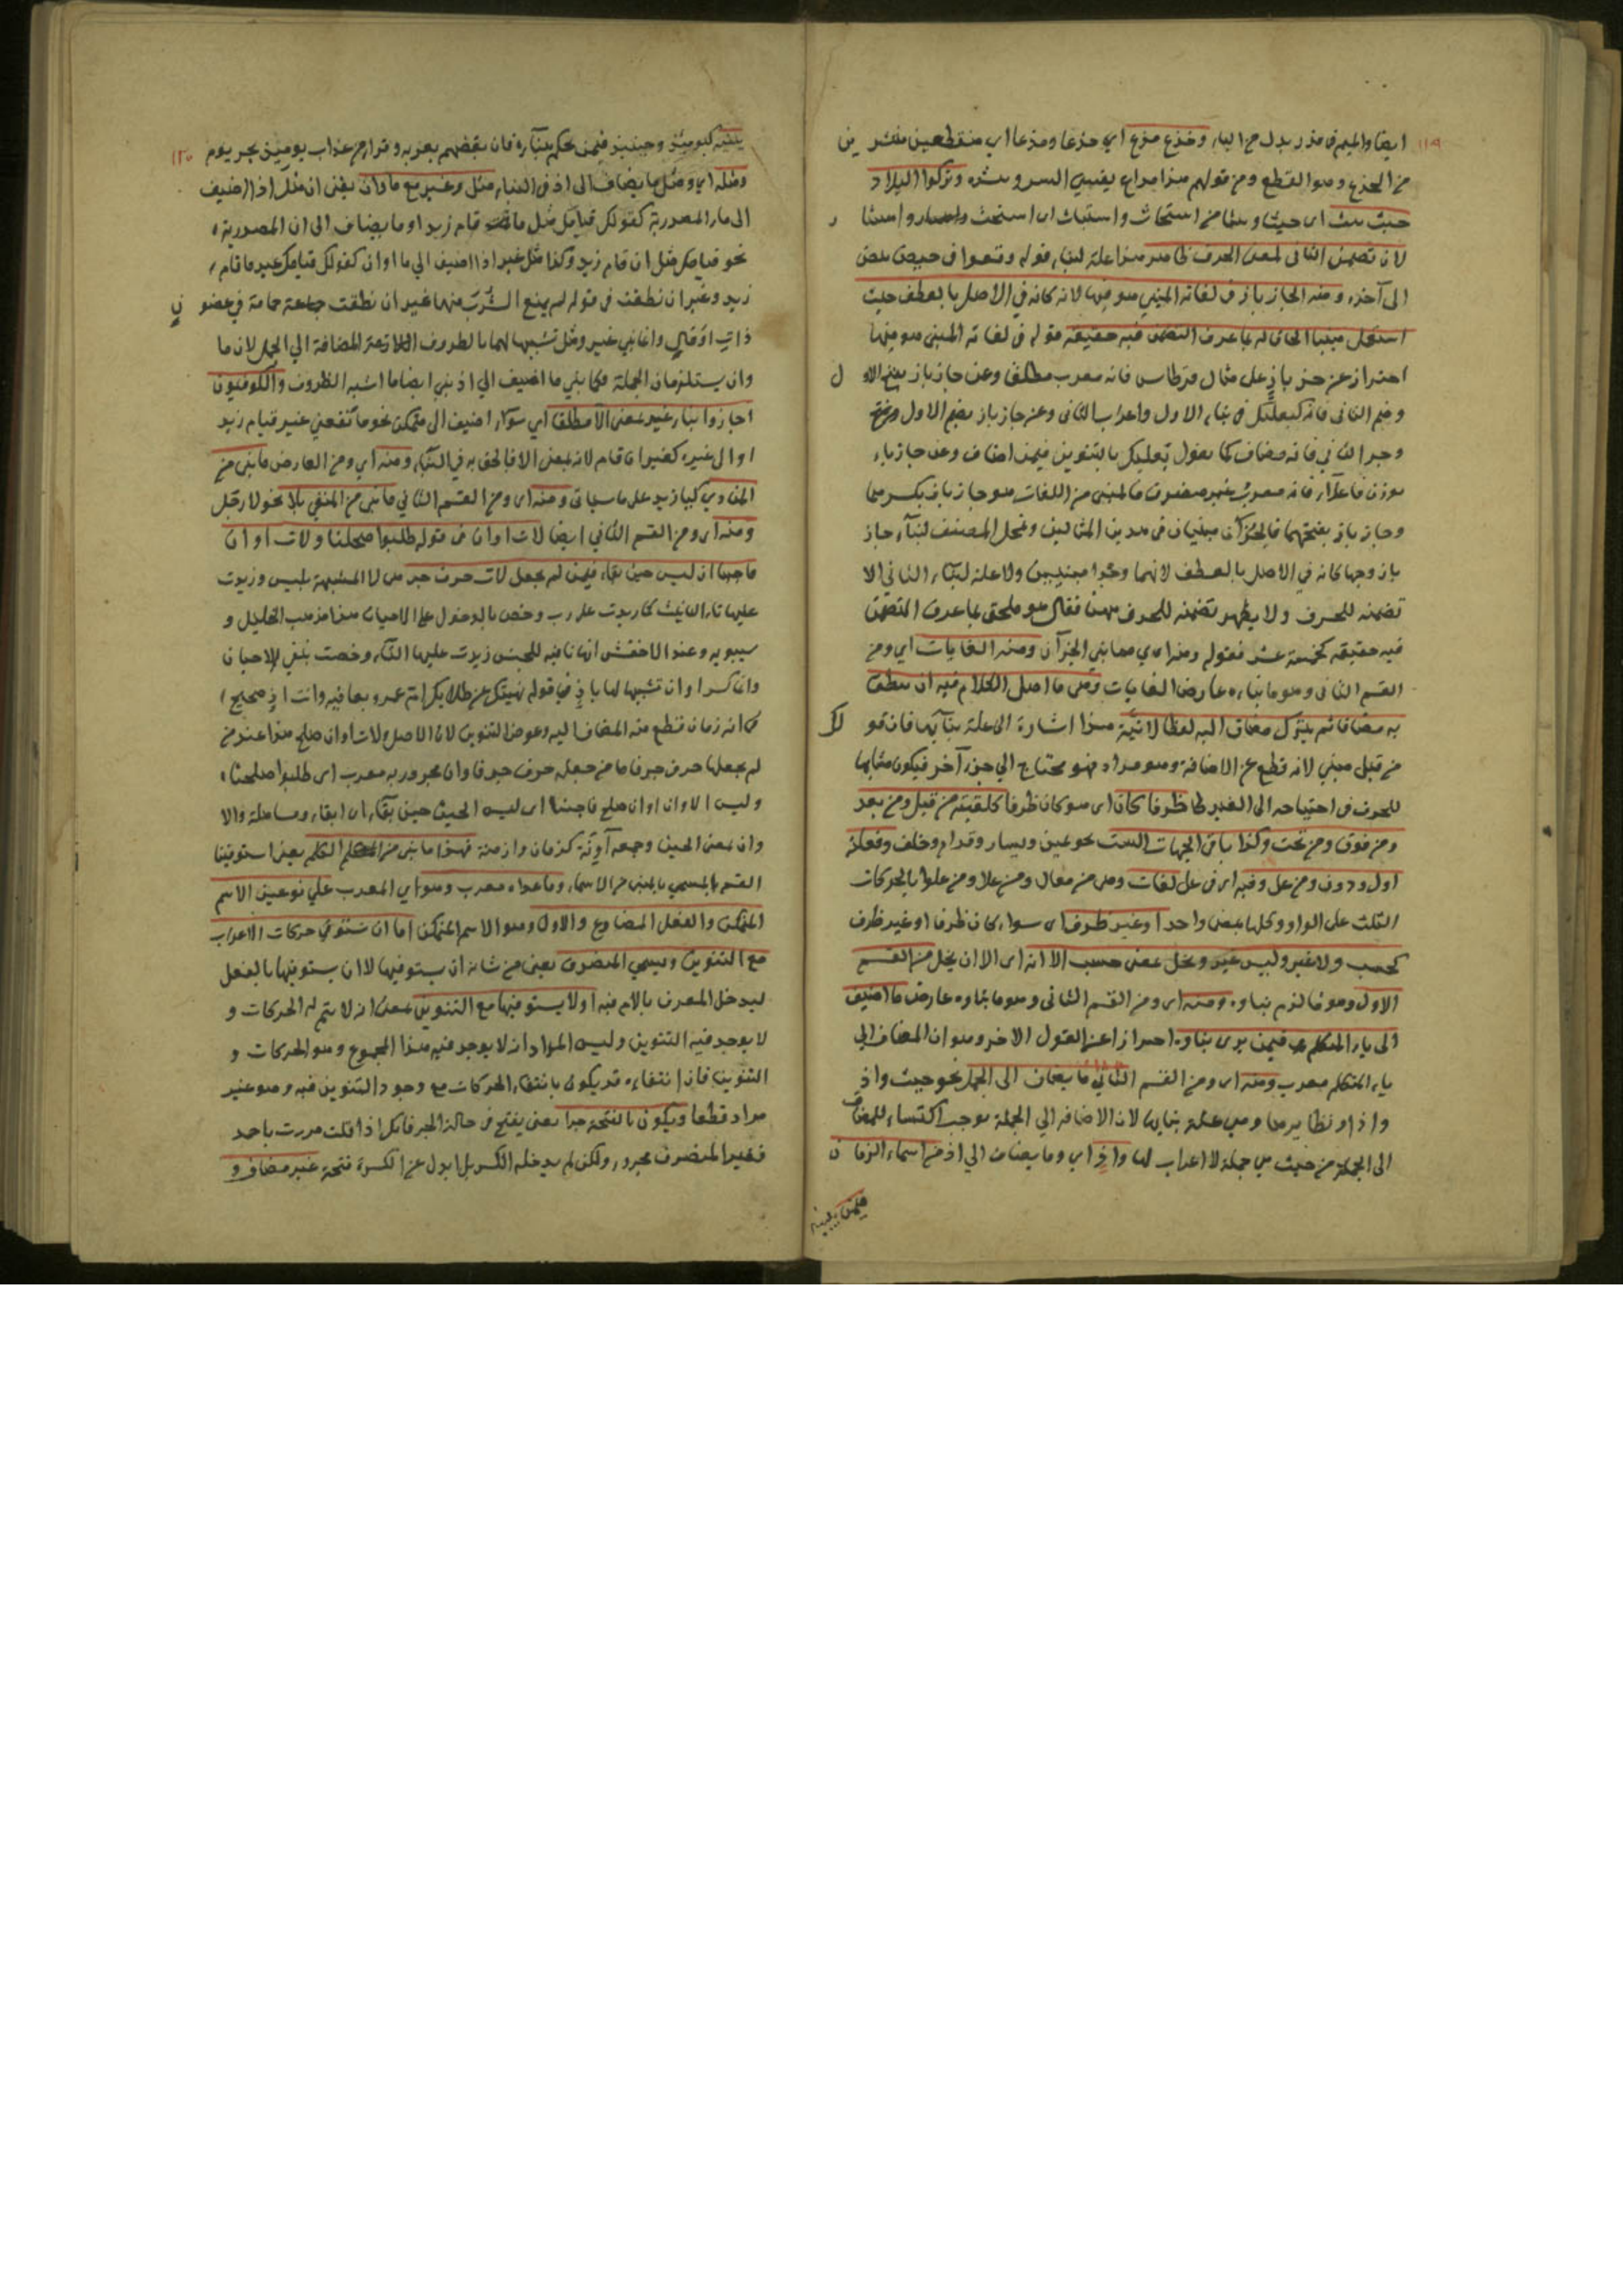 ١١٩
ايضا والميم في مذر بدل من الباء وخذع مذع اي خذعا ومذعا اي منقطعين منتشرين
من الخذع وهو القطع ومن قولهم مذاع يفشي السر وينشره وتركوا البلاد
حيث بيث اي حيثا وبيثا من استحاث واستباث اي استخث
لان تضمن الثاني لمعنى الحرف ظاهر هذا علة لبناء قوله وقعوا في حيص بيص
الى آخره ومنه الخاز باز في لغاته المبني هو فيها لانه كان في الاصل بالعطف حيث
استعمل مبنيا الحاق له بما عرف التضمن فيه حقيقة قوله في لغاته المبني هو فيها
احتراز عن خز باز على مثال قرطاس فانه معرب مطلقا وعن خاز باز بفتح الاول
وضم الثاني فانه كبعلبك في بناء الاول واعراب الثاني وعن خاز باز بضم الاول
وجر الثاني فانه مضاف كما يقول بعلبك بالتنوين فيمن اضاف وعن خازباء
بوزن قاصعاء فانه معرب غير منصرف فالمبني من اللغات هو خاز باز بكسرهما
وخاز باز بفتحهما فالجزآن مبنيان في هذين المثالين وتمحل المصنف لبناء خاز
باز وجها كانه في الاصل بالعطف لانهما وجدا مبنيين ولا علة لبناء الثاني الا
تضمنه للحرف ولا يظهر تضمنه للحرف ههنا فقال هو ملحق بما عرف التضمن
فيه حقيقة كخمسة عشر فقوله ومنه اي مما بني الجزآن ومنه الغايات اي ومن
القسم الثاني وهو ما بناءه عارض الغايات وهي ما اصل الكلام فيه ان ينطق
به مضافا ثم يترك مضاف اليه لفظا لا نية هذا اشارة الى علة بنائها فان قولك
من قبل مبني لانه قطع عن الاضافة وهو مراد فهو محتاج الى جزء آخر فيكون مشابها
للحرف في احتياجه الى الغير ظرفا كان اي هو كان ظرفا كلقيته من قبل ومن بعد
ومن فوق ومن تحت وكذا باقي الجهات الست نحو يمين ويسار وقدام وخلف وفعلته
اول ودون ومن عل وفيه اي في عل لغات وهي من معال ومن علا ومن علوا بالحركات
الثلث على الواو وكلها بمعنى واحد او غير ظرف اي سواء كان ظرفا او غير ظرف
كحسب ولا غير وليس غير وبجل بمعنى حسب الا انه اي الا ان بجل من القسم
الاول وهو ما لزم بناؤه ومنه اي ومن القسم الثاني وهو ما بناؤه عارض ما اضيف
الى ياء المتكلم فيمن يرى بناؤه احترازا عن القول الاخر وهو ان المضاف الى
ياء المتكلم معرب ومنه اي ومن القسم الثاني ما يضاف الى الجمل نحو حيث واذ
واذا ونظايرها وهي علة بنايها لان الاضافة الى الجملة يوجب اكتساء للمضاف
الى الجملة من حيث هي جملة لا اعراب لها واذ اي وما يضاف الى اذ من اسماء الزمان
فيمن يبنيه
١٢٠
يبنيه كيومئذ وحينئذ فيمن يحكم ببنائه فان بعضهم يعربه وقرا من عذاب يومئذ بجر يوم
ومثله اي ومثل ما يضاف الى اذ في البناء مثل وغير مع ما وان يعني ان مثل اذا اضيف
الى ما المصدرية كقولك قيامك مثل ما قام زيد او ما يضاف الى ان المصدرية
نحو قيامك مثل ان قام زيد وكذا مثل غير اذا اضيف الى ما او ان كقولك قيامك غير ما قام
زيد وغير ان نطقت في قوله لم يمنع الشرب منها غير ان نطقت حمامة في غصون
ذات اوقال وانما بني غير ومثل تشبيها لهما بالظروف اللازمة المضافة الى الجمل لان ما
وان يستلزمان الجملة فكما بني ما اضيف الى اذ بني ايضا ما اشبه الظروف والكوفيون
اجازوا بناء غير بمعنى الا مطلقا اي سواء اضيف الى متمكن نحو ما نفعني غير قيام زيد
او الى غيره كغير ان قام لانه بمعنى الا فالحق به في البناء ومنه اي ومن العارض ما بني من
المنادي كيا زيد على ما سياتي ومنه اي ومن القسم الثاني ما بني من المنفي بلا نحو لا رجل
ومنه اي ومن القسم الثاني ايضا لات اوان في قوله طلبوا صلحنا ولات اوان
فاجبنا ان ليس حين بقاء فيمن لم يجعل لات حرف جر هي لا المشبهة بليس وزيدت
عليها تاء التانيث كما زيدت على رب وخص بالدخول على الاحيان هذا مذهب الخليل و
سيبويه وعند الاخفش انها نافية للجنس زيدت عليها التاء وخصت بنفي الاحيان
وانكسر اوان تشبيها لها باذ في قوله نهيتك عن طلابك ام عمرو بعافية وانت اذ صحيح
في انه زمان قطع منه المضاف اليه وعوض التنوين لان الاصل ولات اوان صلح هذا عند من
لم يجعلها حرف جر فاما من جعله حرف جر فاوان مجرور به معرب اي طلبوا صلحنا
وليس الاوان اوان صلح فاجبنا اي ليس الحين حين بقاء اي ابقاء ومساهلة والا
وان بمعنى الحين وجمعه آونة كزمان وازمنة فهذا ما بني من الكلم يعني استوفينا
القسم المسمي بالمبني من الاسماء وما عداه معرب وهو اي المعرب علي نوعين الاسم
المتمكن والفعل المضارع والاول وهو الاسم المتمكن اما ان يستوفي حركات الاعراب
مع التنوين ويسمي المنصرف يعني من شانه ان يستوفيها لا ان يستوفيها بالفعل
ليدخل المعرف بالام فيه او لا يستوفيها مع التنوين بمعنى انه لا يتم له الحركات و
لا يوجد فيه التنوين وليس المراد انه لا يوجد فيه هذا المجموع وهو الحركات و
التنوين فان انتفاءه قد يكون بانتفاء الحركات مع وجود التنوين فيه وهو غير
مراد قطعا ويكون بالفتحة جرا يعني يفتح في حالة الجر فانك اذا قلت مررت باحمد
فغير المنصرف مجرور ولكن لم يدخله الكسر بل ابدل عن الكسرة فتحة غير مضاف و